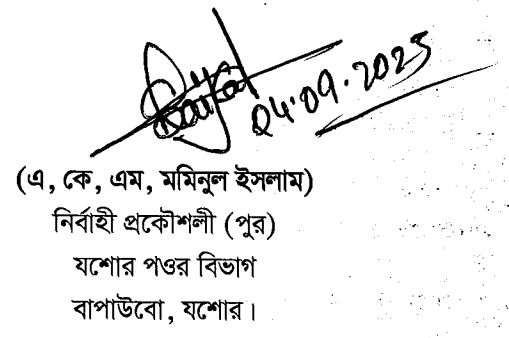 04.09.2025
(এ, কে, এম, মমিনুল ইসলাম)
নির্বাহী প্রকৌশলী (পুর)
যশোর পওর বিভাগ
বাপাউবো, যশোর।